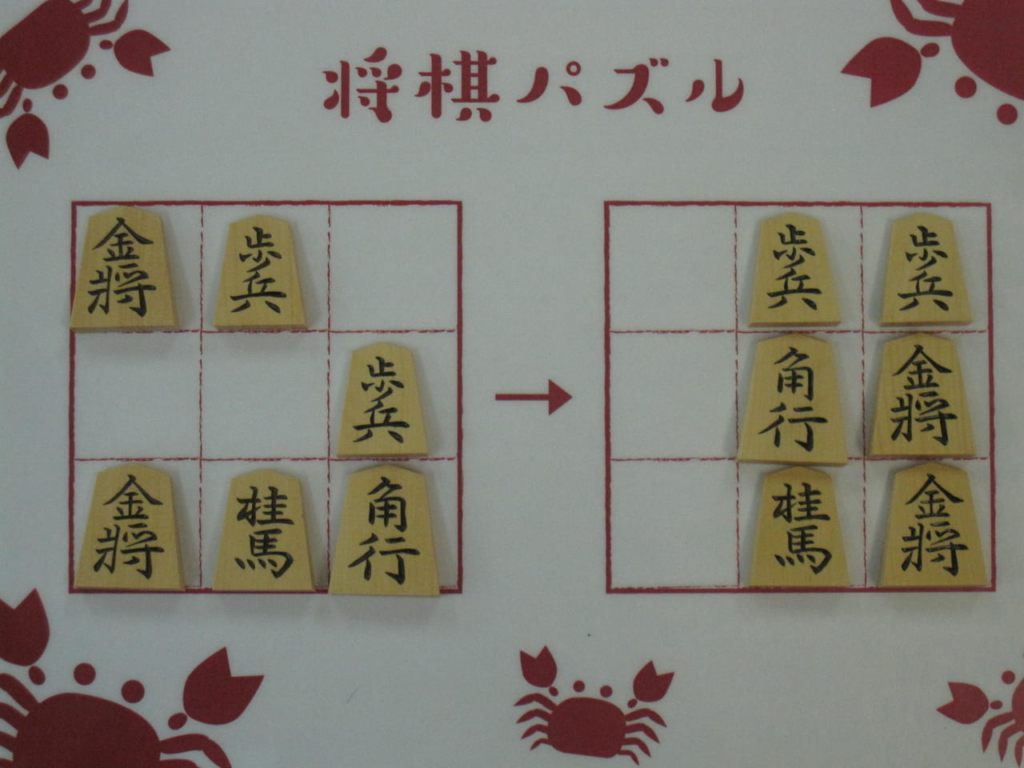 将棋パズル
金將 歩兵 歩兵 歩兵
歩兵 角行 金將
金將 桂馬 角行 桂馬 金將